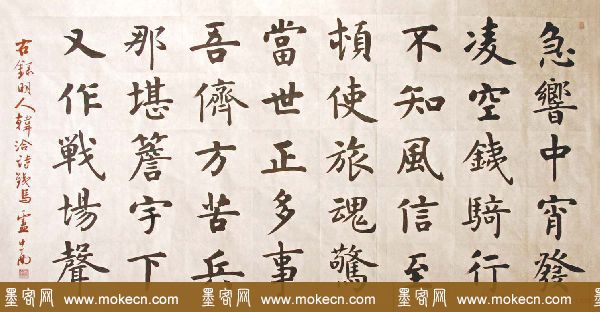 急響中宵發
凌空銕騎行
不知風信至
頓使旅魂驚
當世正多事
吾儕方苦兵
那堪簷宇下
又作戰場聲
右錄明人韓洽詩鐵馬 盧中南
墨客网 www.mokecn.com 墨客网 www.mokecn.com 墨客网 www.mokecn.com